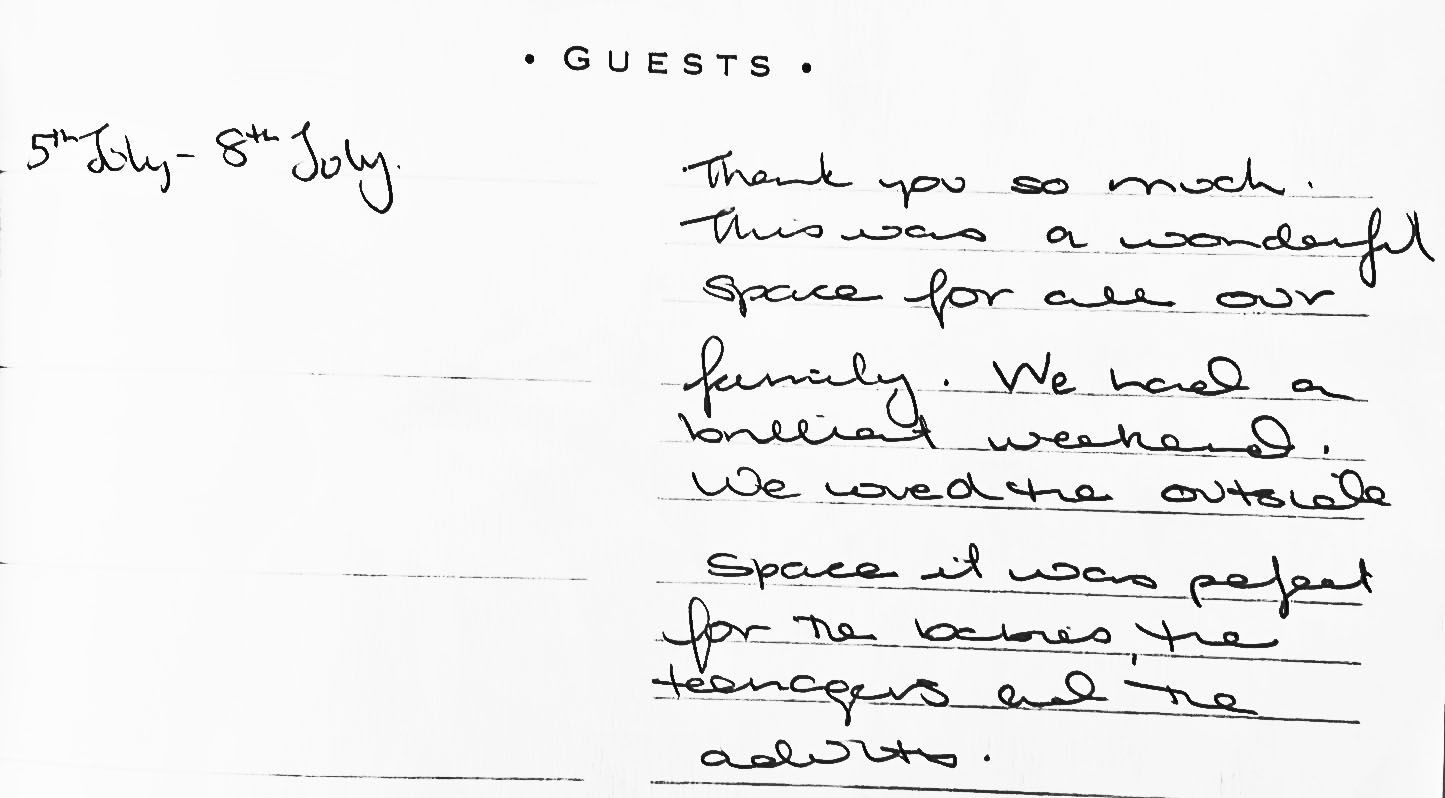 • GUESTS •
5th July - 8th July.
Thank you so much.
This was a wonderful
space for all our
family. We had a
brilliant weekend.
We loved the outside
space it was pefect
for the babies, the
teenagers and the
adults.